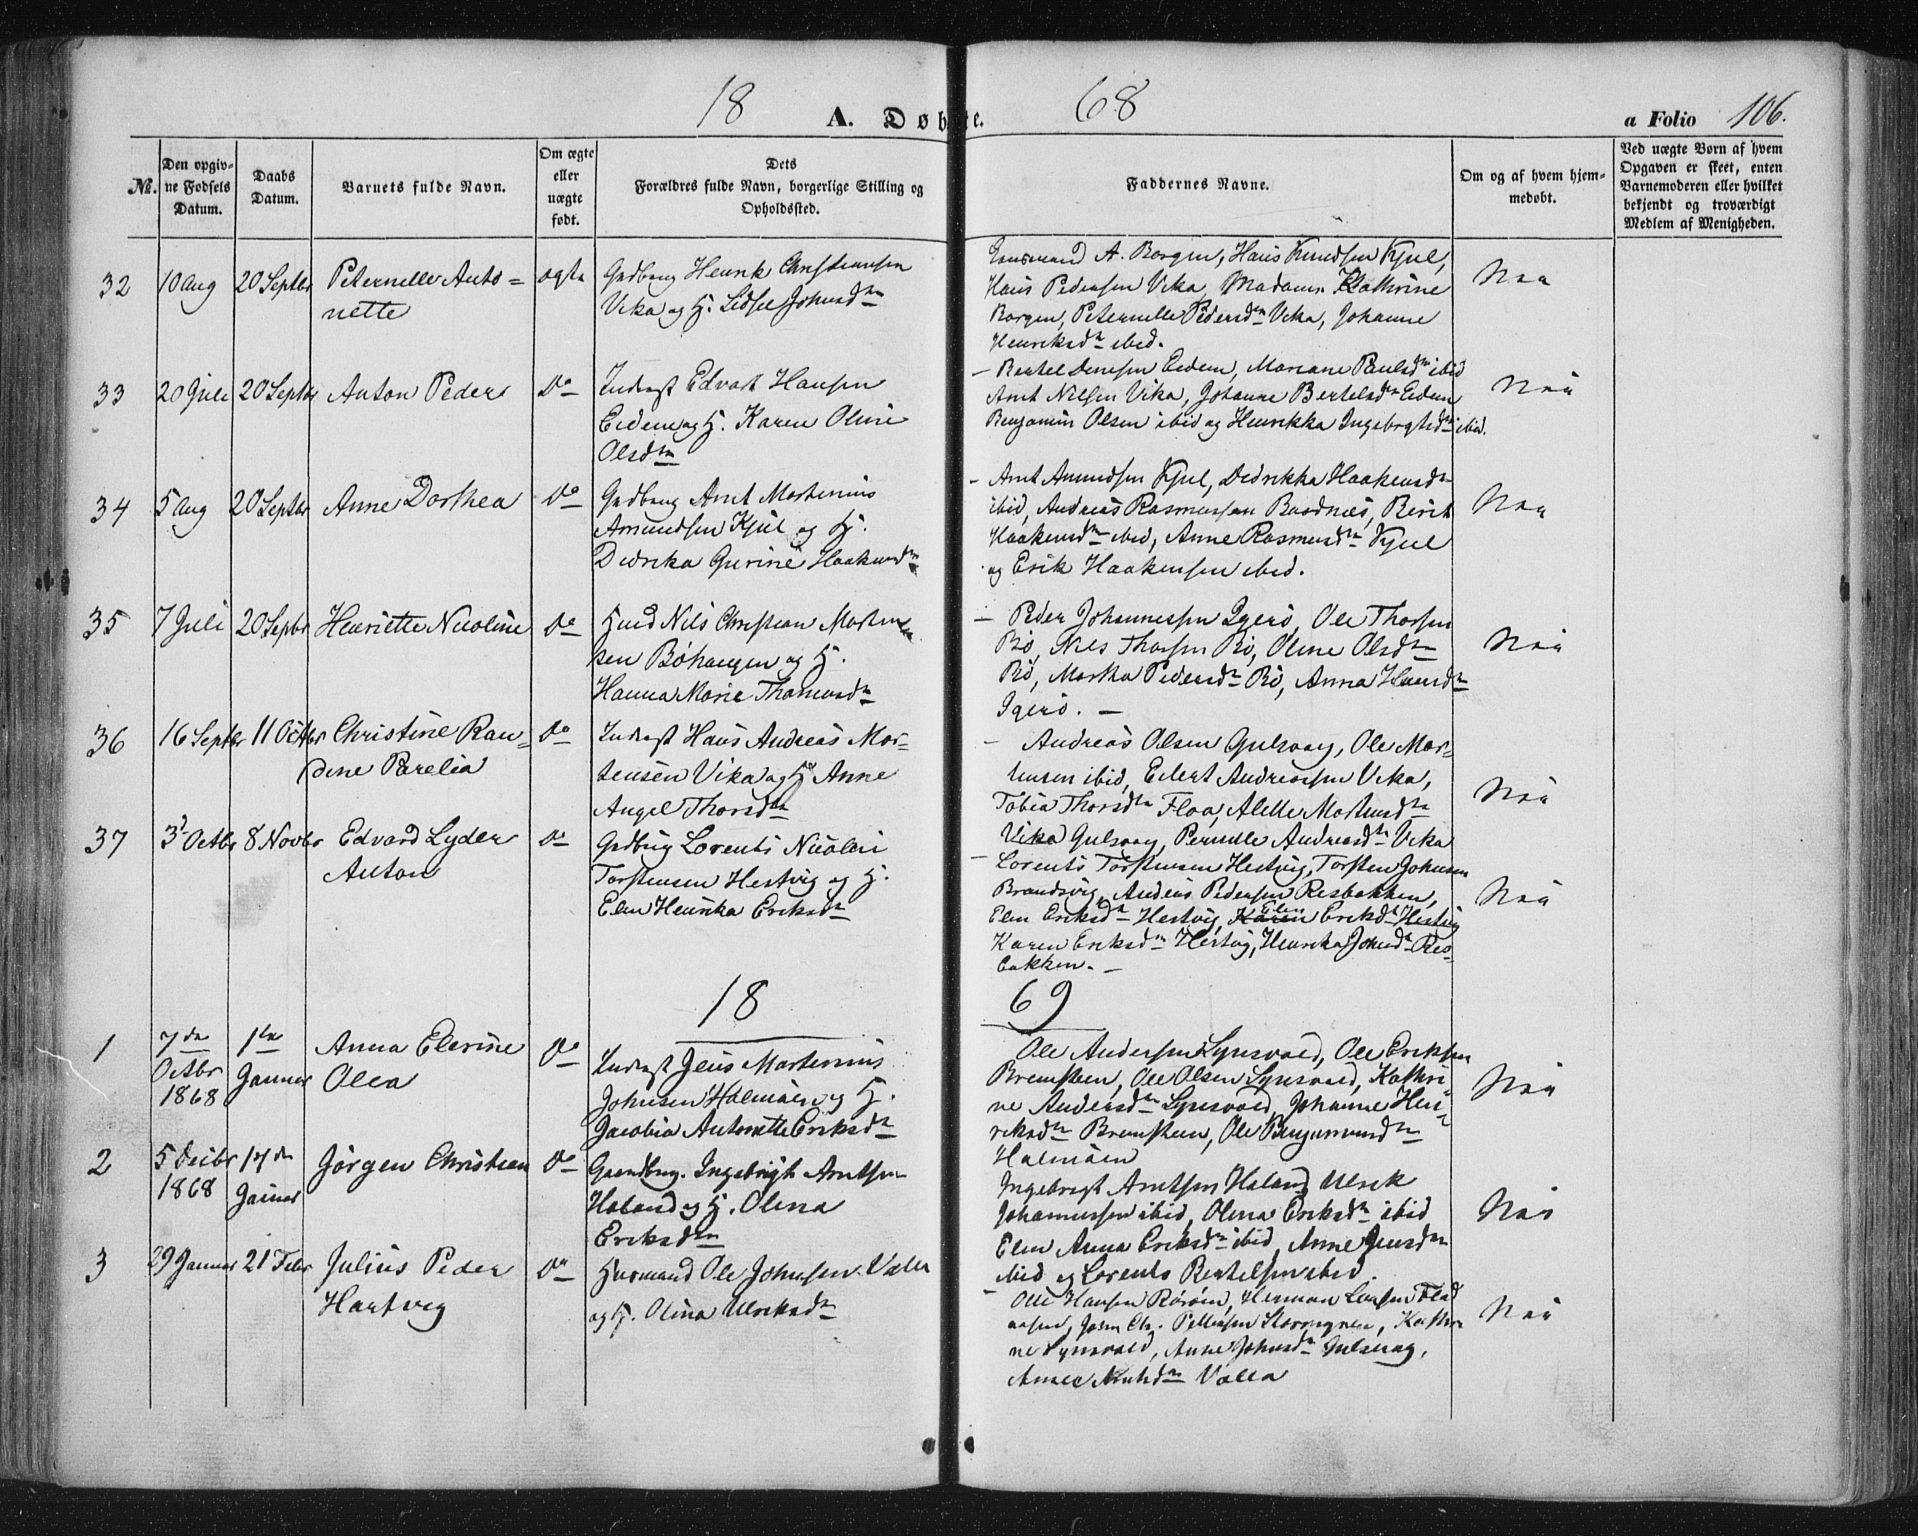 18 68
A. Døbte.
a Folio 106.
№.
Den opgiv-
ne Fødsels
Datum.
Daabs
Datum.
Barnets fulde Navn.
Om ægte
eller
uægte
født.
Dets
Forældres fulde Navn, borgerlige Stilling og
Opholdssted.
Faddernes Navne.
Om og af hvem hjem-
medøbt.
Ved uægte Børn af hvem
Opgaven er skeet, enten
Barnemoderen eller hvilket
bekjendt og troværdigt
Medlem af Menigheden.
32 10 Aug 20 Septbr Peternelle Anto=
nette
ægte
Gdbrug Henrik Christiansen
Vika og H. Lidsel Johnsdtr
A. Borgen, Hans Knudsen Kjul,
Hans Pedersen Vika, Madame Kathrine
Borgen, Peternelle Pedersdtr Vika, Johanne
Henriksdtr ibid.
Nei
33 20 Juli 20 Septbr Anton Peder
Do
Inderst Edvart Hansen
Eidem og H. Karen Oline
Olsdtr
– Bertel Eidem, Mariane Paulsdtr ibid
Arnt Nilsen Vika, Johanne Bertelsdtr Eidem
Benjamin Olsen ibid og Henrikka Ingebrgtsdtr ibid.
Nei
34 5 Aug 20 Septbr Anne Dorthea
Do
Gdbrug Arnt Martinius
Amundsen Kjul og H.
Didrika Gurine Haakensdtr
– Arnt Amundsen Kjul, Dedrikka Haakensdtr
ibid, Andreas Rasmussen Basdnæs, Berit
Haakensdtr ibid, Anne Rasmusdtr Kjul
og Erik Haakensen ibid.
Nei
35 7 Juli 20 Septbr Henriette Nicoline
Do
Husmd Nils Christian Morten
sen Bøhaugen og H.
Hanna Marie Thomasdtr
– Peder Johannessen Igerø, Ole Thorsen
Bø, Nils Thorsen Bø, Oline Olsdtr
Bø, Martha Pedersdtr Bø, Anna Hansdtr
Igerø. –
Nei
36 16 Septbr 11 Octbr Christine Ran=
dine Parelia
Do
Inderst Hans Andreas Mor-
tensen Vika og H. Anne
Angel Thorsdtr
– Andreas Olsen Gulsvaag, Ole Mor-
tensen ibid, Eilert Andreassen Vika,
Tobia Thorsdtr Floa, Alette Mortensdtr
Vika Gulsvaag, Pernille Andreasdtr Vika
Nei
37 3' Octbr 8 Novbr Edvard Lyder
Anton
Do
Gdbrug Lorents Nicolai
Torstensen Hestvig og H.
Elen Henrika Eriksdtr
– Lorents Torstensen Hestvig, Torsten Johnsen
Brandsvig, Andreas Pedersen Resbakken,
Elen Eriksdtr Hestvig, Karen Eriksdtr Hestvig
Karen Eriksdtr Hestvig, Henrika Johnsdtr Res-
bakken. –
Nei
18 69
1 7de
Octbr
1868
1te
Januar
Anna Elerine
Olea
Do
Inderst Jens Martinius
Johnsen Halmøen og H.
Jacobia Antonette Eriksdtr
Ole Andersen Synsvold, Ole Eriksen
Bremsteen, Ole Olsen Synsvold, Kathri
ne Andersdtr Synsvold, Johanne Hen-
riksdtr Bremsteen, Ole
Halmøen
Nei
2 5 Decbr
1868
17de
Januar
Jørgen Christian
Do
Gaardbrug. Ingebrigt Arntsen
Haland og H. Olina
Eriksdtr
Ingebrigt Arntsen Haland, Ulrik
Johannessen ibid, Olina Eriksdtr ibid
Elen Anna Eriksdtr ibid, Anne Jensdtr
ibid og Lorents Bertelsen ibid.
Nei
3 29 Januar 21 Febr Julius Peder
Hartvig
Do
Husmand Ole Johnsen Valla
og H. Olina Ulriksdtr
– Ole Hansen Rørøen, Herman Larsen
Kathri
ne Synsvold, Anne Johnsdtr Gulsvag,
Anne Arntsdtr Valla
Nei